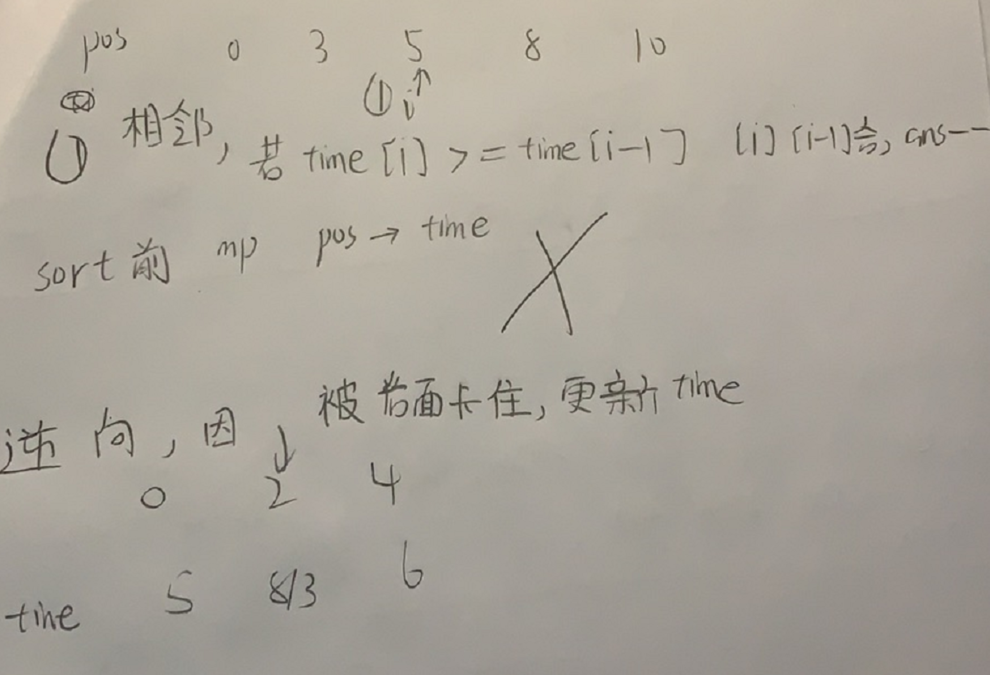 pos 0 3 5 8 10
① i↑
① 相邻, 若 time [i] >= time [i-1] [i] [i-1]会, ans--
sort 前 mp pos → time
逆向, 因 ↓ 被后面卡住, 更新 time
0 2 4
time 5 8/3 6